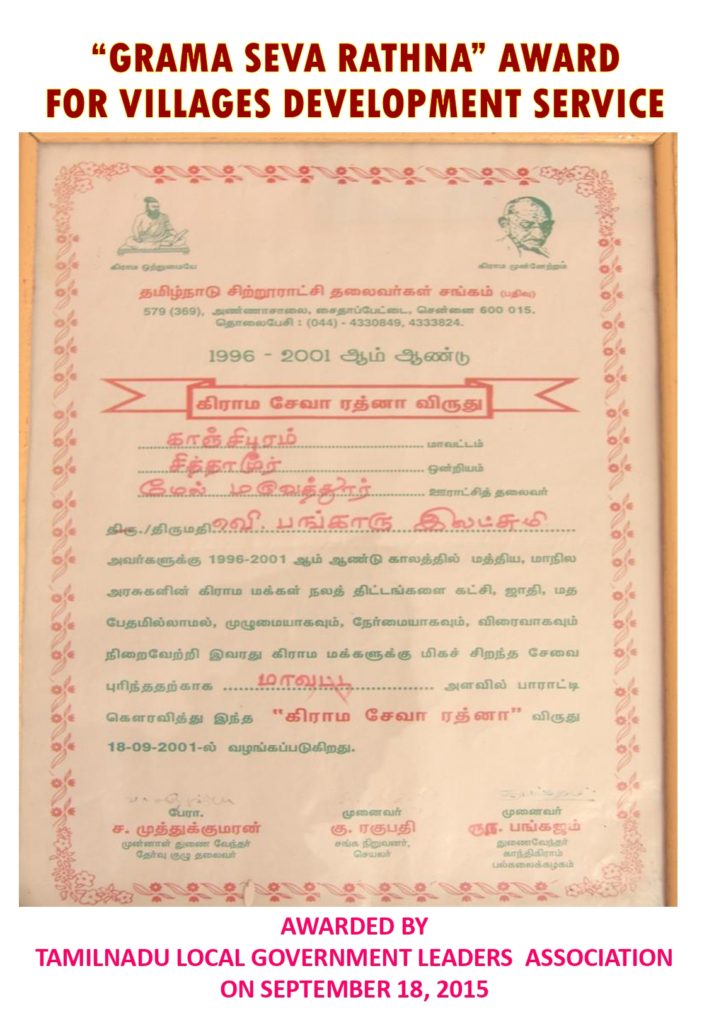 “GRAMA SEVA RATHNA” AWARD
FOR VILLAGES DEVELOPMENT SERVICE
கிராம ஒற்றுமையே
கிராம முன்னேற்றம்
தமிழ்நாடு சிற்றூராட்சி தலைவர்கள் சங்கம் (பதிவு)
579 (369), அண்ணாசாலை, சைதாப்பேட்டை, சென்னை 600 015.
தொலைபேசி : (044) - 4330849, 4333824.
1996 - 2001 ஆம் ஆண்டு
கிராம சேவா ரத்னா விருது
காஞ்சிபுரம் மாவட்டம்
சித்தாமூர் ஒன்றியம்
மேல் மருவத்தூர் ஊராட்சித் தலைவர்
திரு./திருமதி வி. பங்காரு இலட்சுமி
அவர்களுக்கு 1996-2001 ஆம் ஆண்டு காலத்தில் மத்திய, மாநில
அரசுகளின் கிராம மக்கள் நலத் திட்டங்களை கட்சி, ஜாதி, மத
பேதமில்லாமல், முழுமையாகவும், நேர்மையாகவும், விரைவாகவும்
நிறைவேற்றி இவரது கிராம மக்களுக்கு மிகச் சிறந்த சேவை
புரிந்ததற்காக மாவட்ட அளவில் பாராட்டி
கௌரவித்து இந்த “கிராம சேவா ரத்னா” விருது
18-09-2001-ல் வழங்கப்படுகிறது.
பேரா. முனைவர் முனைவர்
ச. முத்துக்குமரன் கு. ரகுபதி பங்கஜம்
முன்னாள் துணை வேந்தர் சங்க நிறுவனர், துணைவேந்தர்
தேர்வு குழு தலைவர் செயலர் காந்திகிராம
பல்கலைக்கழகம்
AWARDED BY
TAMILNADU LOCAL GOVERNMENT LEADERS ASSOCIATION
ON SEPTEMBER 18, 2015